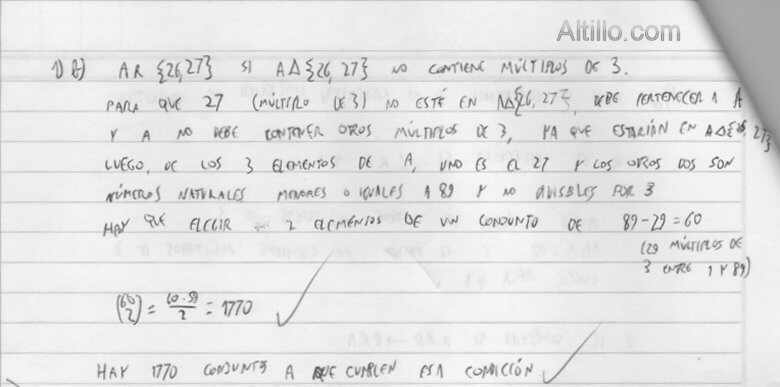 Altillo.com
1) b) A R {26,27} SI A Δ {26,27} NO CONTIENE MÚLTIPLOS DE 3.
PARA QUE 27 (MÚLTIPLO DE 3) NO ESTÉ EN AΔ{26,27}, DEBE PERTENECER A A
Y A NO DEBE CONTENER OTROS MÚLTIPLOS DE 3, YA QUE ESTARÍAN EN AΔ{26,27}
LUEGO, DE LOS 3 ELEMENTOS DE A, UNO ES EL 27 Y LOS OTROS DOS SON
NÚMEROS NATURALES MENORES O IGUALES A 89 Y NO DIVISIBLES POR 3
HAY QUE ELEGIR 2 ELEMENTOS DE UN CONJUNTO DE 89-29=60
(29 MÚLTIPLOS DE
3 ENTRE 1 Y 89)
(60 2) = 60·59/2 = 1770
HAY 1770 CONJUNTOS A QUE CUMPLEN ESA CONDICIÓN